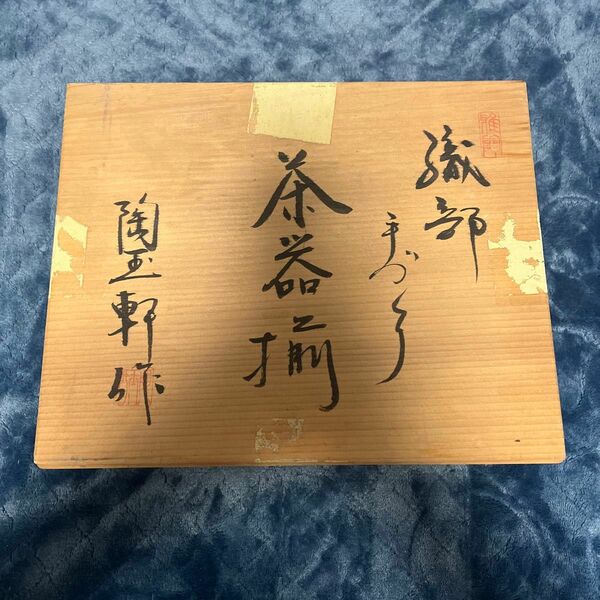 織部
手づくり
茶器揃
陶玉軒作